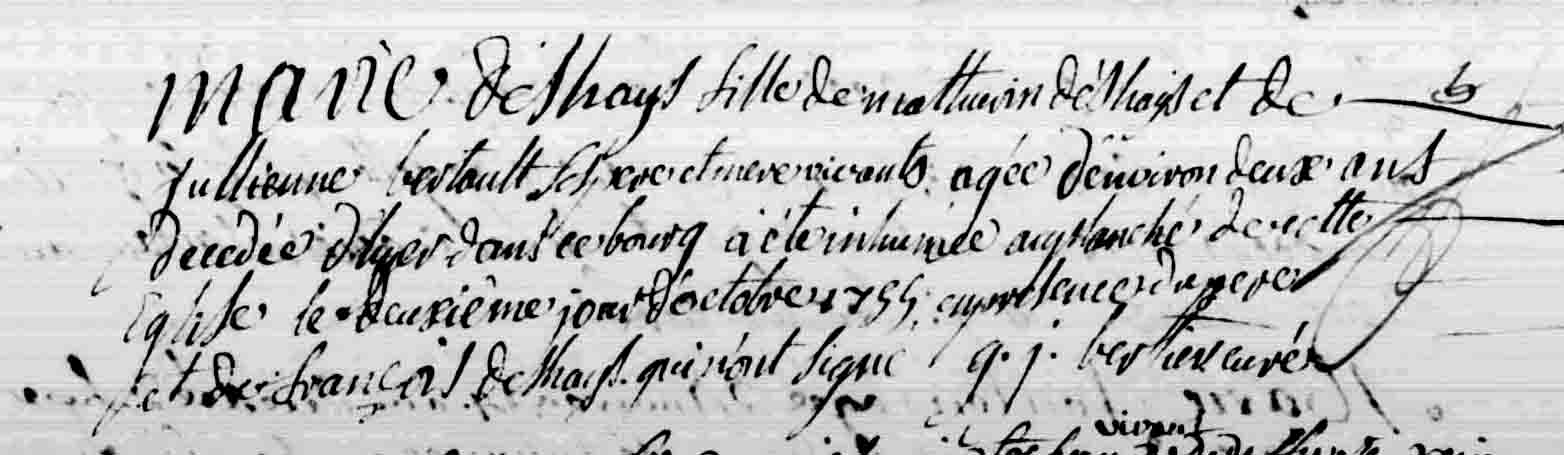 Marie deshays fille de mathurin déshays et de
Jullienne bertault ses pere et mere vivants agée d'environ deux ans
decedée d'hyer dans ce bourg a éte inhumée au planché de cette
Eglise le deuxiême jour d'octobre 1755 en presence du pere
et de françois deshays qui n'ont signe g. j. bertier curé
vivant